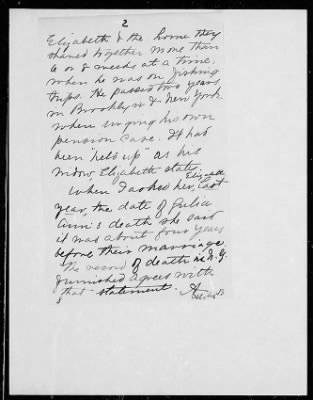 2
Elizabeth & the home they
shared together more than
6 or 8 weeks at a time,
when he was on fishing
trips. He passed two years
in Brooklyn & New York
when urging his own
pension case. It has
been "held up" as his
widow, Elizabeth states.
When I asked her, Elizabeth, last
year, the date of Julia
Ann's death she said
it was about four years
before their marriage
The record of death in N.Y.
furnished agrees with
that statement.